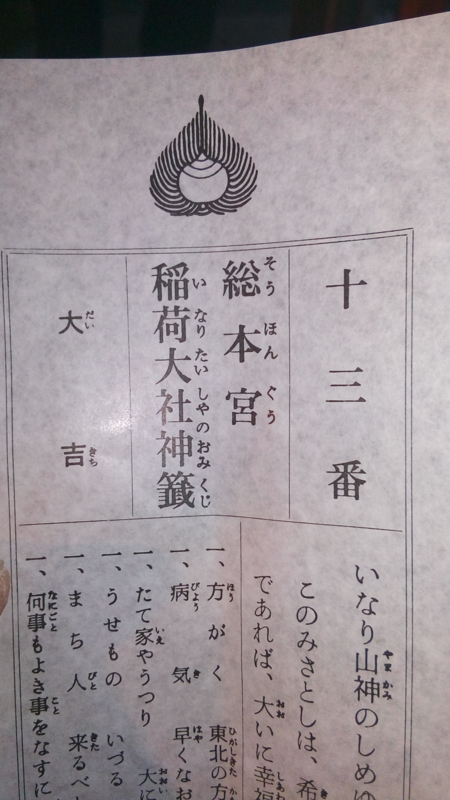 十三番
総本宮
稲荷大社神籤
大吉
いなり山神のしめ
このみさとしは、希
であれば、大いに幸福
一、方がく 東北の方
一、病気 早くなお
一、たて家やうつり 大に
一、うせもの いづる
一、まち人 来るべ
一、何事もよき事をなすに